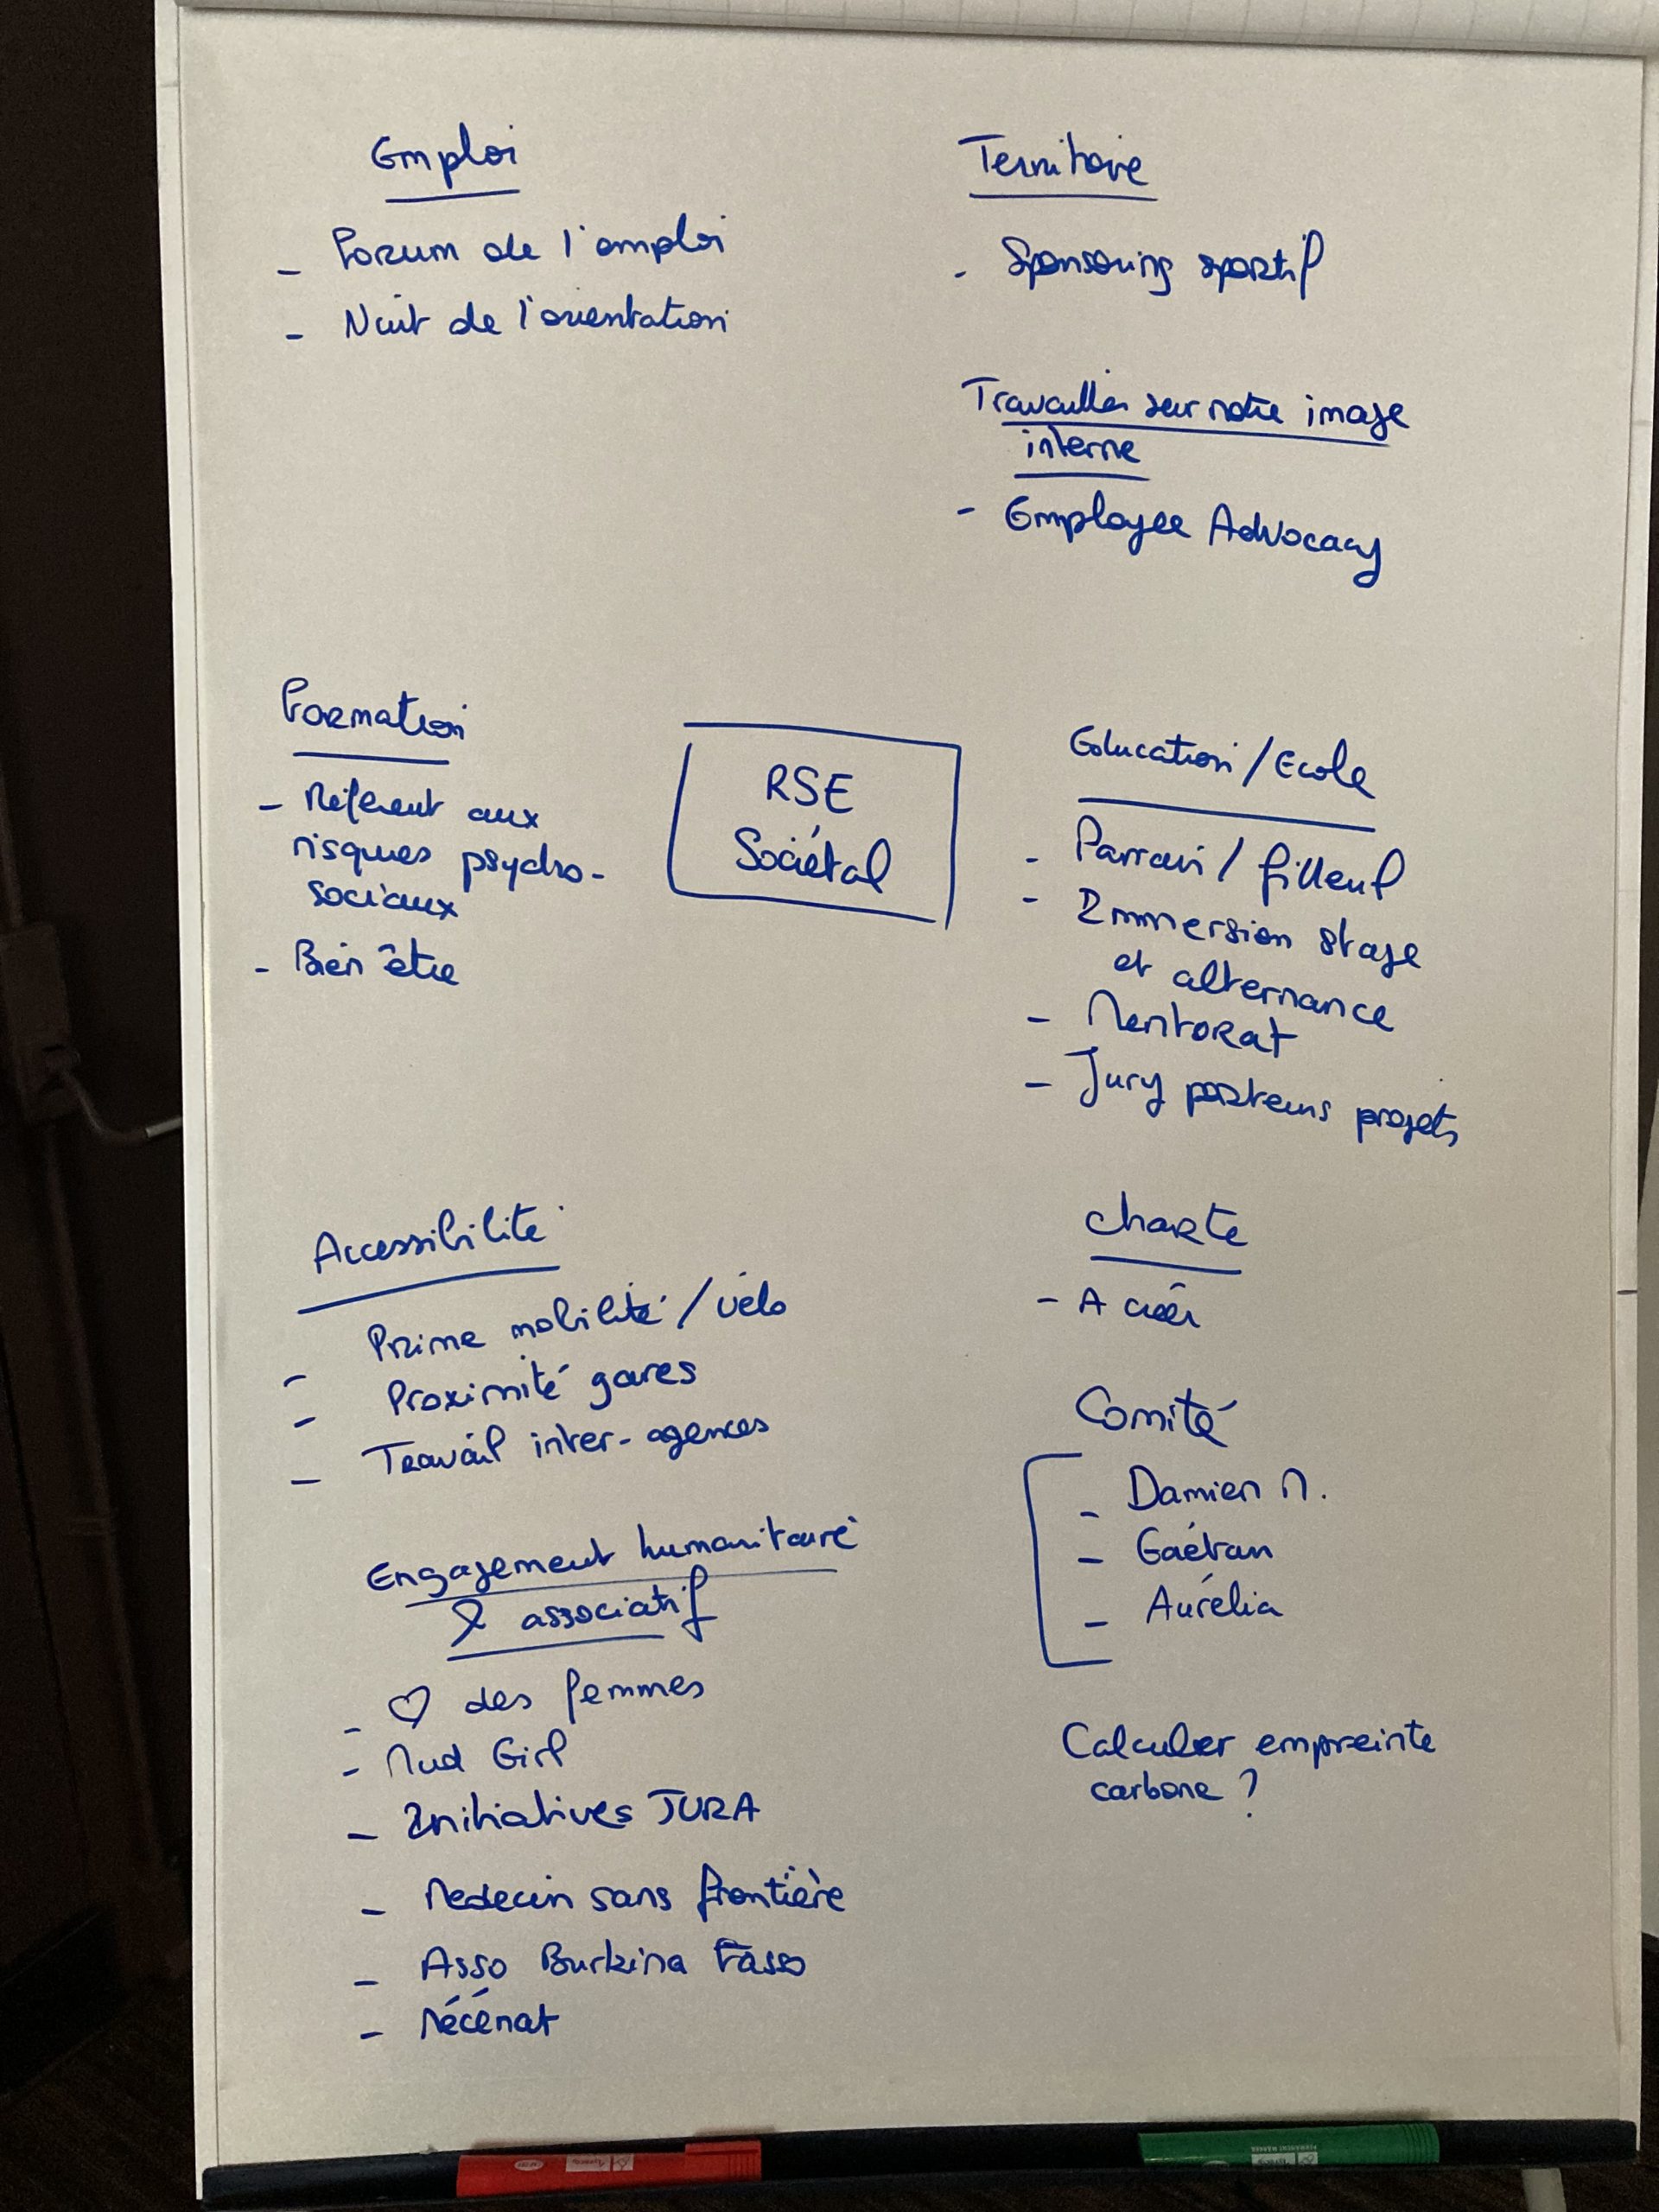 Emploi
- Forum de l'emploi
- Nuit de l'orientation
Territoire
- Sponsoring sportif
Travailler sur notre image
interne
- Employee Advocacy
Formation
- Référent aux
risques psycho-
sociaux
- Bien être
RSE
Sociétal
Education / Ecole
- Parrain / filleul
- Immersion stage
et alternance
- Mentorat
- Jury porteurs projets
Accessibilité
- Prime mobilité / vélo
- Proximité gares
- Travail inter-agences
Engagement humanitaire
& associatif
- ♡ des femmes
- Mud Girl
- Initiatives JURA
- Medecin sans frontière
- Asso Burkina Fasso
- Mécénat
Charte
- A créer
Comité
- Damien M.
- Gaétan
- Aurélia
Calculer empreinte
carbone ?